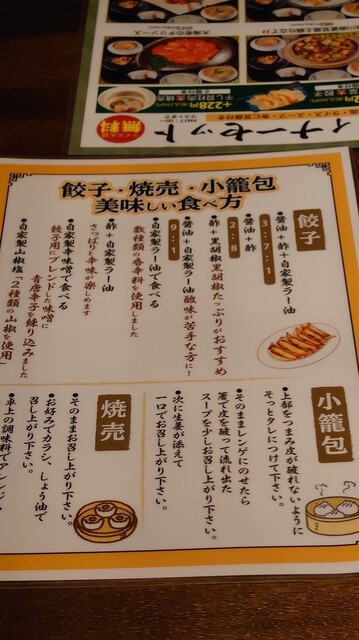 餃子・焼売・小籠包
美味しい食べ方
餃子
・醤油+酢+自家製ラー油
3:7:1
・醤油+酢
2:8
・酢+黒胡椒
黒胡椒たっぷりがおすすめ
・醤油+自家製ラー油
9:1
酸味が苦手な方に!
・自家製ラー油で食べる
数種類の香辛料を使用しました
・酢+自家製ラー油
さっぱりと辛味が楽しめます
・自家製辛味噌で食べる
餃子用にブレンドした味噌に
青唐辛子を練り込みました
・自家製山椒塩「2種類の山椒を使用」
小籠包
・上部をつまみ皮が破れないように
そっとタレにつけて下さい。
・そのままレンゲにのせたら
箸で皮を破って流れ出た
スープを少しお召し上がり下さい。
・次に生姜が添えて
一口でお召し上がり下さい。
焼売
・そのままお召し上がり下さい。
・お好みでカラシ、しょう油で
召し上がり下さい。
・卓上の調味料でアレンジ
ィナーセット
無料
ライス大盛
+228円